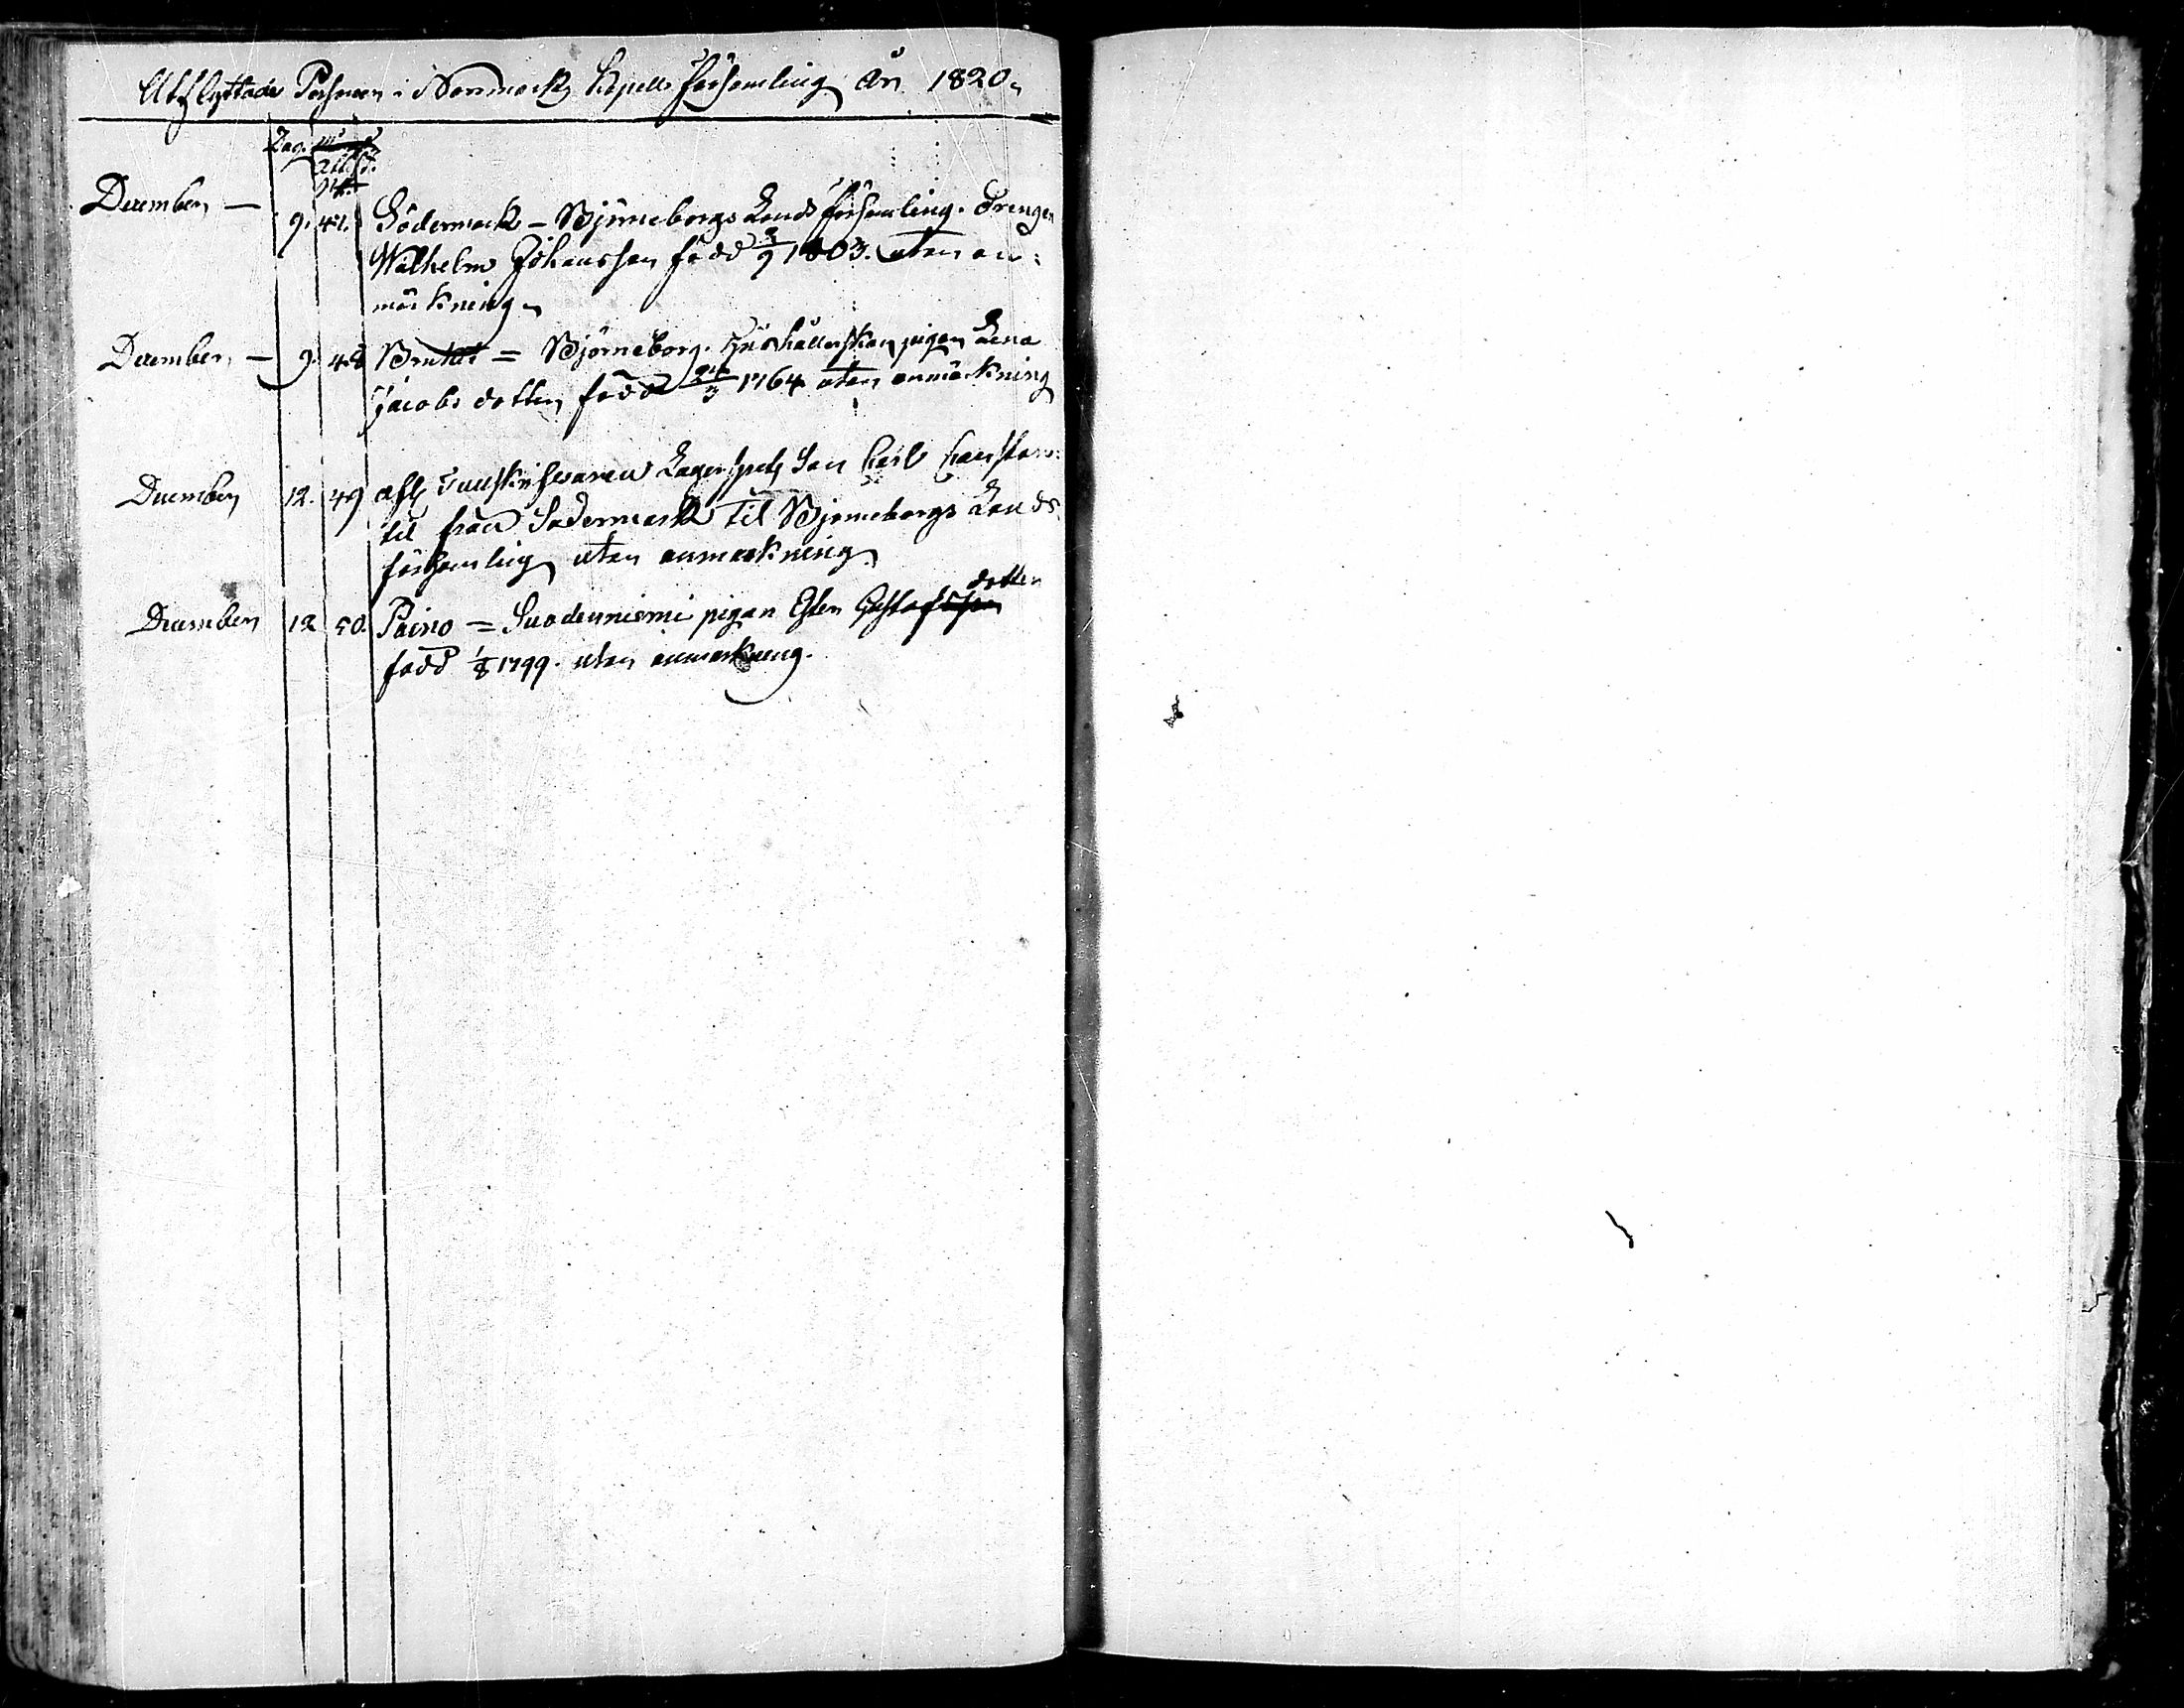 Utflyttade Personer i Norrmarks Capells Församling År 1820.
Dag.
Attest.
N:
December — 9. 47. Södermark – Björneborgs Lands församling. Drengen
Wilhelm Johansson född 3/9 1803. utan an:
märkning
December — 9. 48 Bruket = Björneborg. Hushållerskan pigan Lena
Jacobs dotter, född 24/3 1764 utan anmärkning
December 12. 49 Lagerspetz Son Carl
til från Södermark til Björneborgs Lands
församling utan anmärkning
December 12 50. Paino = Suodenniemi pigan Ester Gustafsson dotter
född 1/8 1799. utan anmärkning.